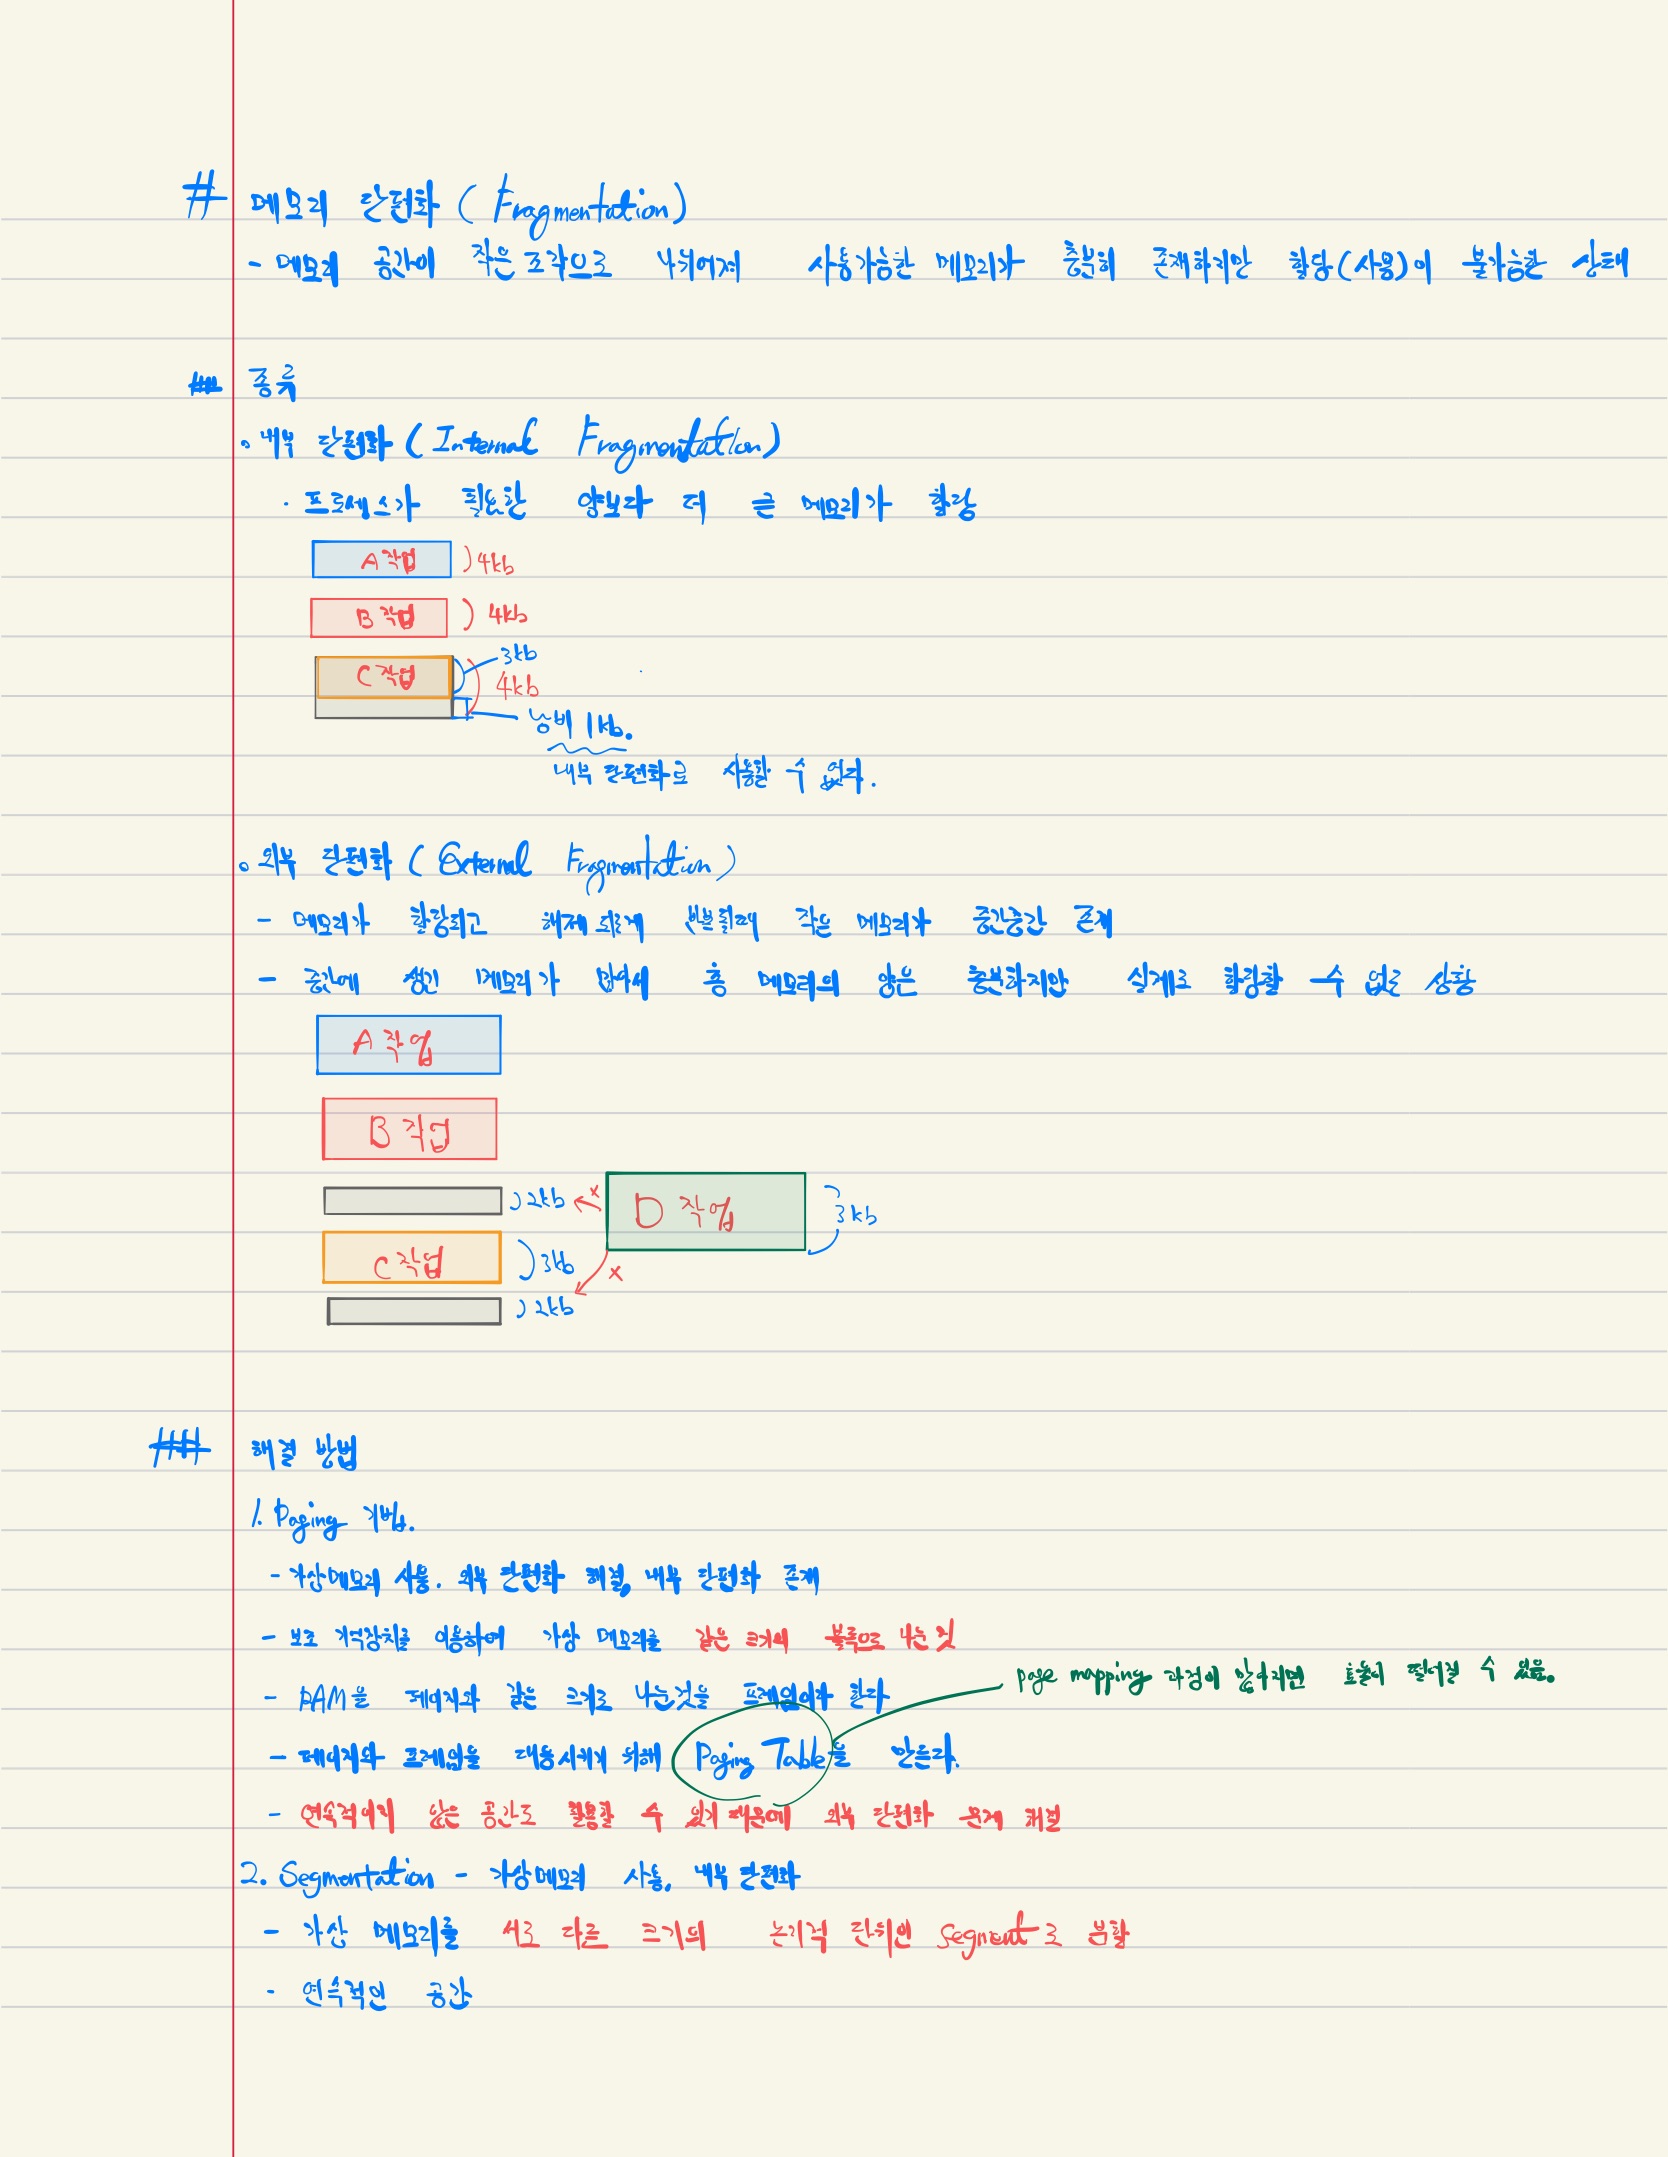 # 메모리 단편화 ( Fragmentation )
- 메모리 공간이 작은 조각으로 나뉘어져 사용가능한 메모리가 충분히 존재하지만 할당(사용)이 불가능한 상태
## 종류
내부 단편화 ( Internal Fragmentation )
· 프로세스가 필요한 양보다 더 큰 메모리가 할당
A 작업 4kb
B 작업 4kb
C 작업 3kb
4kb
낭비 1kb.
내부 단편화로 사용할 수 없다.
외부 단편화 ( External Fragmentation )
- 메모리가 할당되고 해제 되는게 반복될때 작은 메모리가 중간중간 존재
- 중간에 생긴 메모리가 많아서 총 메모리의 양은 충분하지만 실제로 할당할 수 없는 상황
A 작업
B 작업
2kb x D 작업 3kb
C 작업 3kb x
2kb
### 해결 방법
1. Paging 기법.
- 가상메모리 사용. 외부 단편화 해결, 내부 단편화 존재
- 보조 기억장치를 이용하여 가상 메모리를 같은 크기의 블록으로 나눈 것
page mapping 과정이 많아지면 효율이 떨어질 수 있음.
- RAM을 페이지와 같은 크기로 나눈것을 프레임이라 한다
- 페이지와 프레임을 대응시키기 위해 Paging Table을 만든다.
- 연속적이지 않은 공간도 활용할 수 있기 때문에 외부 단편화 문제 해결
2. Segmentation - 가상메모리 사용, 내부 단편화
- 가상 메모리를 서로 다른 크기의 논리적 단위인 Segment로 분할
- 연속적인 공간